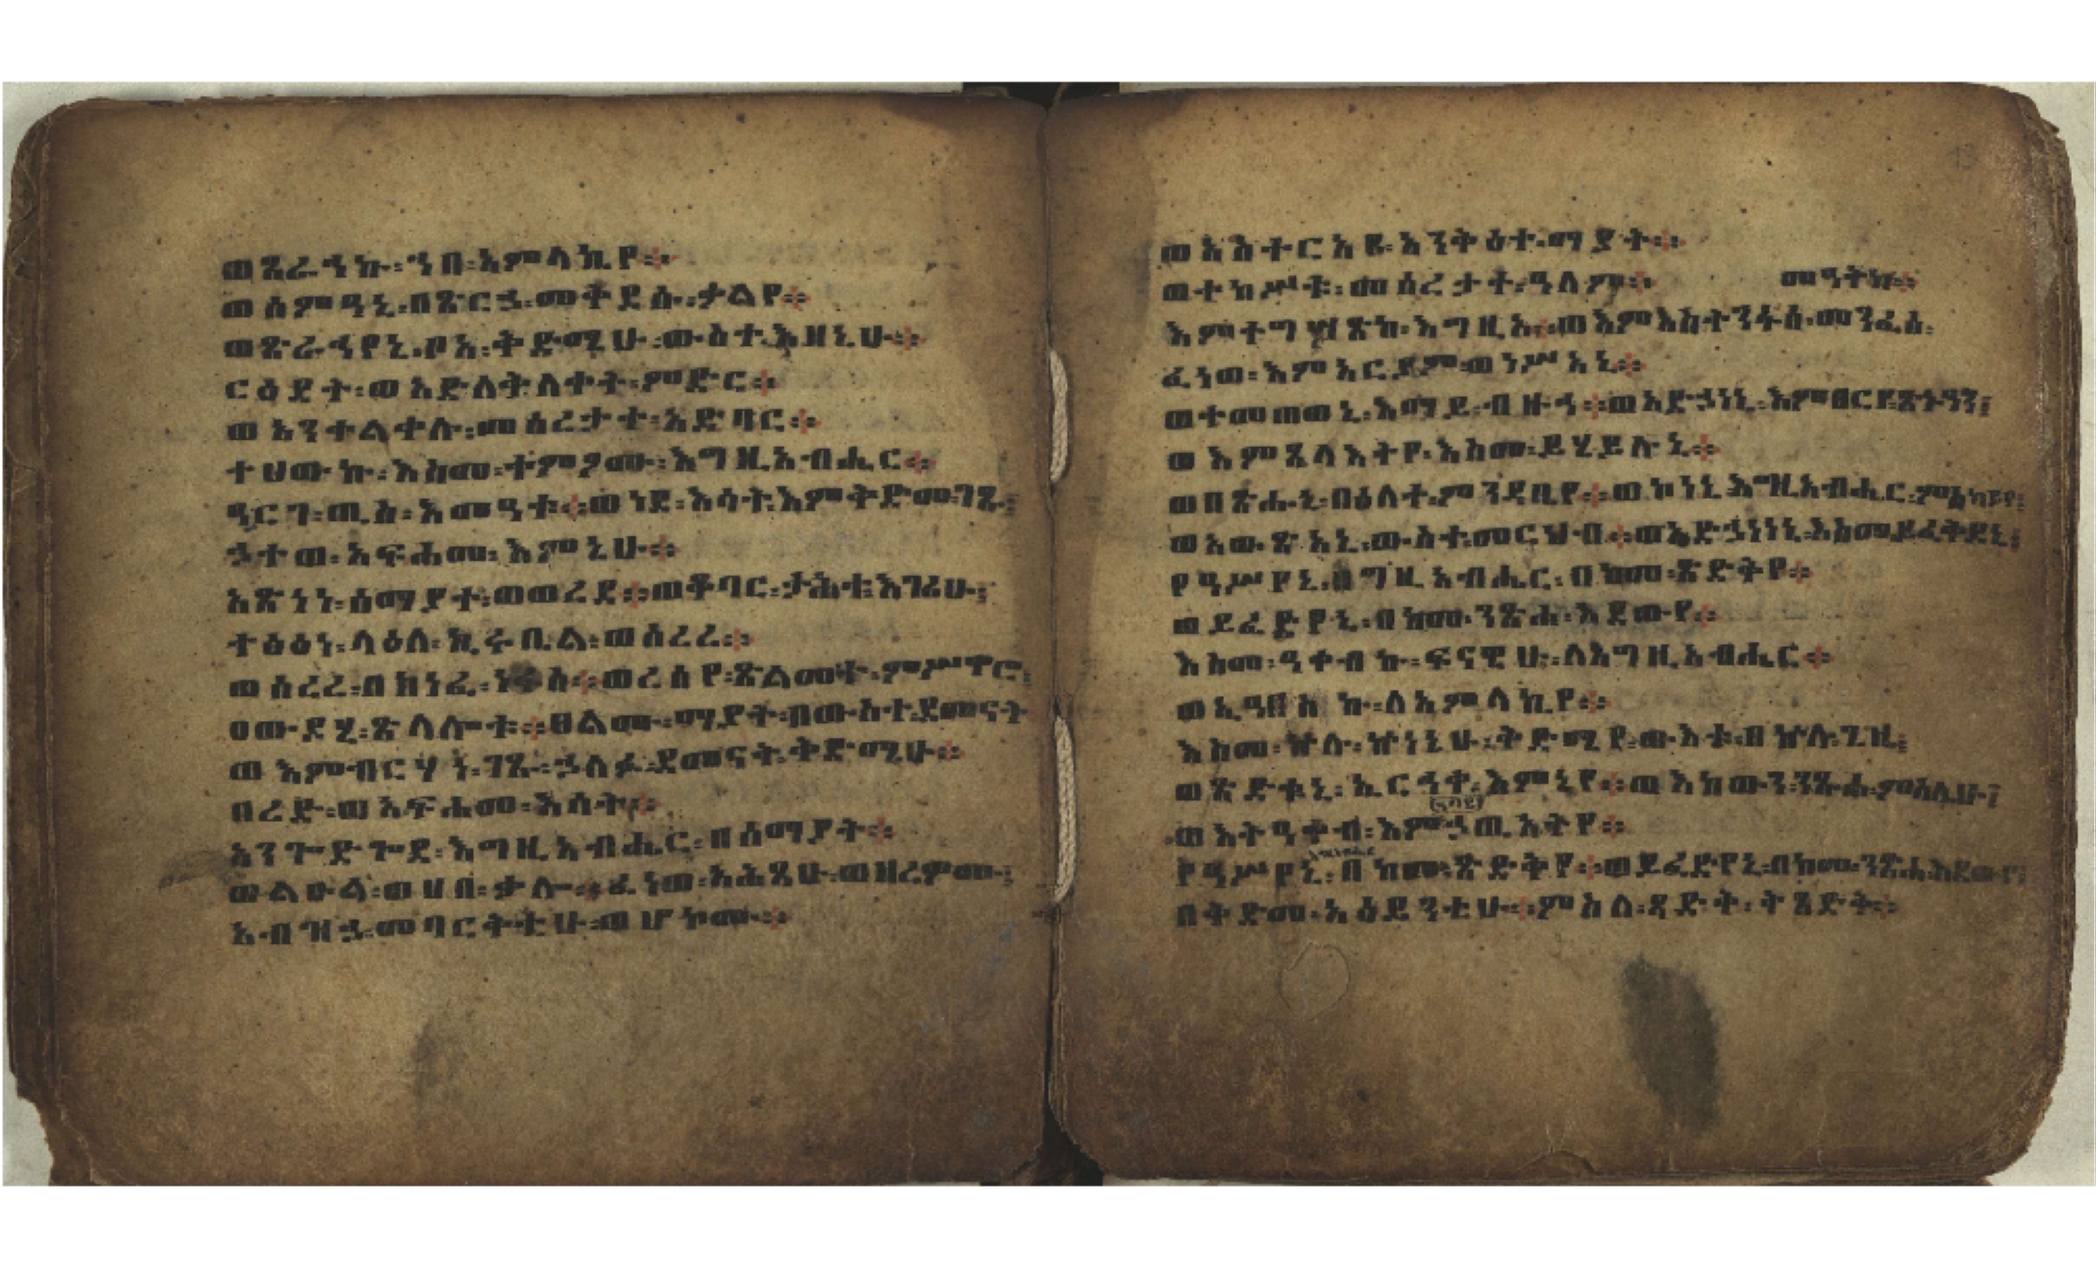 ወጸራኅኩ፡ኀበ፡አምላኪየ።
ወሰምዓኒ፡በጽርኃ፡መቅደሱ፡ቃልየ።
ወጽራኅየኒ፡ቦአ፡ቅድሜሁ፡ውስተ፡እዘኒሁ።
ርዕደት፡ወአድለቅለቀት፡ምድር።
ወአንቀልቀሉ፡መሰረታተ፡አድባር።
ተሀውኩ፡እስመ፡ተምዖሙ፡እግዚአብሔር።
ዓርገ፡ጢስ፡እመዓቱ።ወነደ፡እሳት፡እምቅድመ፡ገጹ፤
ኃተወ፡አፍሐመ፡እምኔሁ።
አጽነነ፡ሰማያተ፡ወወረደ።ወቆባር፡ታሕተ፡እገሪሁ፤
ተፅዕነ፡ላዕለ፡ኪሩቤል፡ወሰረረ።
ወሰረረ፡በክነፈ፡ነፋስ።ወረሰየ፡ጽልመተ፡ምሥዋሮ፤
ዐውደሂ፡ጽላሎቱ።ፀልሙ፡ማያት፡በውስተ፡ደመናት
ወእምብርሃነ፡ገጹ፡ኃለፉ፡ደመናት፡ቅድሜሁ።
በረድ፡ወአፍሐመ፡እሳት።
አንጐድጐደ፡እግዚአብሔር፡በሰማያት።
ወልዑል፡ወሀበ፡ቃሎ።ፈነወ፡አሕጻሁ፡ወዘረዎሙ፤
አብዝኃ፡መባርቅቲሁ፡ወሆኮሙ።
ወአስተርአዩ፡አንቅዕተ፡ማያት።
ወተከሥቱ፡መሰረታተ፡ዓለም።
መዓትከ።
እምተግሣጽከ፡እግዚኦ።ወእምእስትንፋሰ፡መንፈሰ፡
ፈነወ፡እምአርያም፡ወነሥአኒ።
ወተመጠወኒ፡እማይ፡ብዙኅ።ወአድኃነኒ፡እምፀርየ፡ጽኑዓን፤
ወእምጸላእትየ፡እስመ፡ይሄይሉኒ።
ወበጽሑኒ፡በዕለተ፡ምንዳቤየ።ወኮነኒ፡እግዚአብሔር፡ምስካይየ፤
ወአውጽአኒ፡ውስተ፡መርሕብ።ወአድኃነኒ፡እስመ፡ይፈቅደኒ፤
የዓሥየኒ፡እግዚአብሔር፡በከመ፡ጽድቅየ።
ወይፈድየኒ፡በከመ፡ንጽሐ፡እደውየ።
እስመ፡ዓቀብኩ፡ፍናዊሁ፡ለእግዚአብሔር።
ወኢዓበስኩ፡ለአምላኪየ።
እስመ፡ኵሉ፡ኵነኔሁ፡ቅድሜየ፡ውእቱ፡በኵሉ፡ጊዜ፤
ወጽድቁኒ፡ኢርኅቀ፡እምኔየ።ወእከውን፡ንጹሐ፡ምስሌሁ፤
ወእትዓቀብ፡እምኃጢአትየ።
የዓሥየኒ፡በከመ፡ጽድቅየ።ወይፈድየኒ፡በከመ፡ንጽሐ፡እደውየ፤
በቅድመ፡አዕይንቲሁ።ምስለ፡ጻድቅ፡ትጸድቅ።